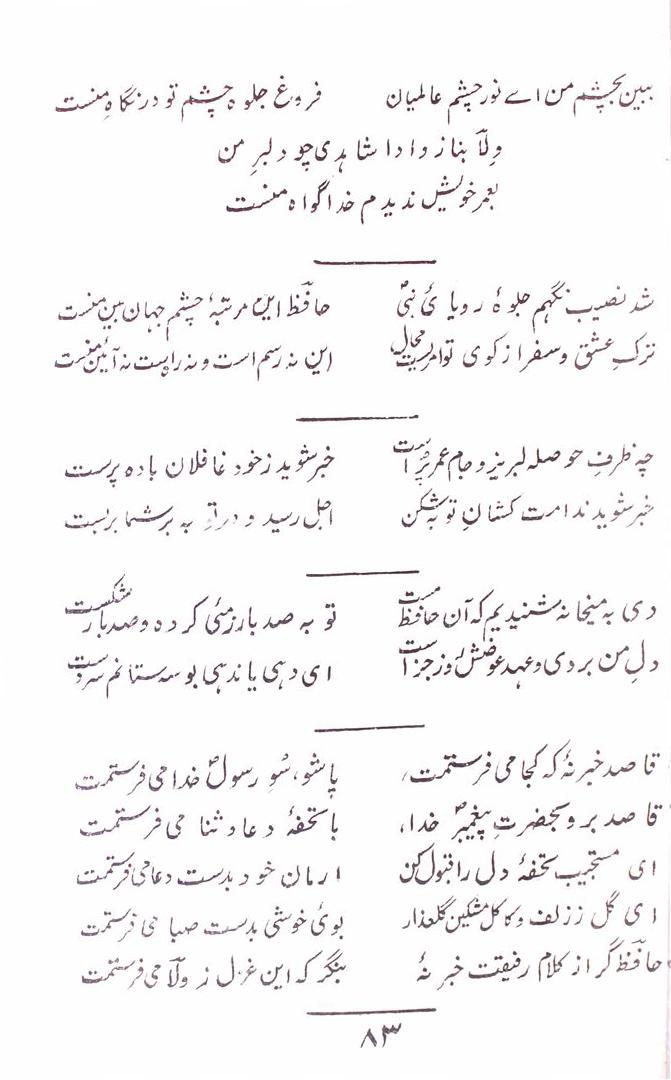 ببین بچشم من اے نور چشم عالمیان فروغ جلوہ چشم تو در نگاہِ منست
ولّا بناز و ادا شاہدی چو دلبرِ من
بعمر خویش ندیدم خدا گواہ منست
شد نصیب نگہم جلوۂ رویائ نبیؐ حافظؔ این مرتبۂ چشم جہان بین منست
ترکِ عشق و سفر از کوی تو امریست محال این نہ رسم است و نہ راہست نہ آئین منست
چہ ظرفِ حوصلہ لبریز و جام عمر پُر است خبر شوید ز خود غافلان بادہ پرست
خبر شوید ندامت کشانِ توبہ شکن اجل رسید و در توبہ بر شما بربست
دی بہ میخانہ شنیدیم کہ آن حافظ مست توبہ صد بار ز مئی کردہ و صد بار شکست
دلِ من بردی و عہد عوضش روز جزا است ای دہی یا ندہی بوسہ ستانم سردست
قاصد خبر نۂ کہ کجا می فرستمت، پا شو، سُو رسولؐ خدا می فرستمت
قاصد برو بحضرتِ پیغمبرؐ خدا، با تحفۂ دعا و ثنا می فرستمت
ای مستجیب تحفۂ دل را قبول کن ارمان خود بدست دعا می فرستمت
ای گل ز زلف و کاکل مشکین گلعذار بوئ خوشی بدست صبا می فرستمت
حافظؔ گر از کلام رفیقت خبر نۂ بنگر کہ این غزل ز ولّا می فرستمت
۸۳